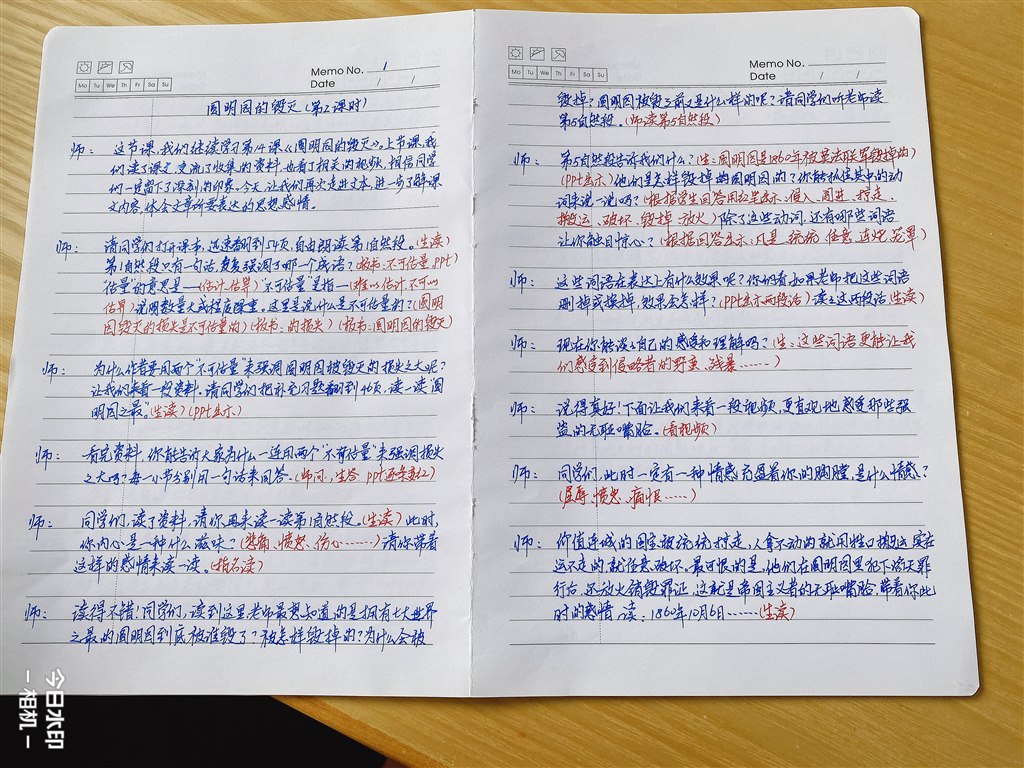 Memo No. 1
Mo Tu We Th Fr Sa Su
Date / /
圆明园的毁灭(第2课时)
师: 这节课,我们继续学习第14课《圆明园的毁灭》。上节课,我
们读了课文,交流了收集的资料,也看了相关的视频,相信同学
们一定留下了深刻的印象。今天,让我们再次走进文本,进一步了解课
文内容,体会文章所要表达的思想感情。
师: 请同学们打开课本,迅速翻到54页,自由朗读第1自然段。(生读)
第1自然段只有一句话,反复强调了哪一个成语?(板书:不可估量,ppt)
"估量"的意思是—(估计、估算)"不可估量"是指—(难以估计、不可以
估算)说明数量大或程度深重。这里是说什么是不可估量的?(圆明
园毁灭的损失是不可估量的)(板书:的损失)(板书:圆明园的毁灭)
师: 为什么作者要用两个"不可估量"来强调圆明园被毁灭的损失太大呢?
让我们来看一段资料。请同学们把补充习题翻到46页,读一读"圆
明园之最"(生读)(ppt出示)
师: 看完资料,你能告诉大家为什么一连用两个"不可估量"来强调损失
之大吗?每一小节分别用一句话来回答。(师问,生答,ppt逐条变红)
师: 同学们,读了资料,请你再来读一读第1自然段。(生读)此时,
你内心是一种什么滋味?(悲痛、愤怒、伤心……)请你带着
这样的感情来读一读。(指名读)
师: 读得不错!同学们,读到这里老师最想知道的是拥有七大世界
之最的圆明园到底被谁毁了?被怎样毁掉的?为什么会被
Mo Tu We Th Fr Sa Su
Memo No.
Date / /
毁掉?圆明园被毁之前又是什么样的呢?请同学们听老师读
第5自然段。(师读第5自然段)
师: 第5自然段告诉我们什么?(生:圆明园是1860年被英法联军毁掉的)
(ppt出示)他们是怎样毁掉的圆明园的?你能抓住其中的动
词来说一说吗?(根据学生回答用红笔出示:侵入、闯进、掠走、
搬运、破坏、毁掉、放火)除了这些动词,还有哪些词语
让你触目惊心?(根据回答出示:凡是、统统、任意、连烧、笼罩)
师: 这些词语在表达上有什么效果呢?你们看如果老师把这些词语
删掉或换掉,效果会怎样?(ppt出示两段话)读读这两段话(生读)
师: 现在你能谈谈自己的感受和理解吗?(生:这些词语更能让我
们感受到侵略者的野蛮、残暴……)
师: 说得真好!下面让我们来看一段视频,更直观地感受那些强
盗的无耻嘴脸。(看视频)
师: 同学们,此时一定有一种情感充盈着你的胸膛,是什么情感?
(屈辱、愤怒、痛恨……)
师: 价值连城的国宝被统统掠走,人拿不动的就用牲口搬运,实在
运不走的就任意破坏。最可恨的是,他们在圆明园里犯下滔天罪
行后,还放火销毁罪证,这就是帝国主义者的无耻嘴脸,带着你此
时的感情,读:1860年10月6日……(生读)
今日水印
一相机一